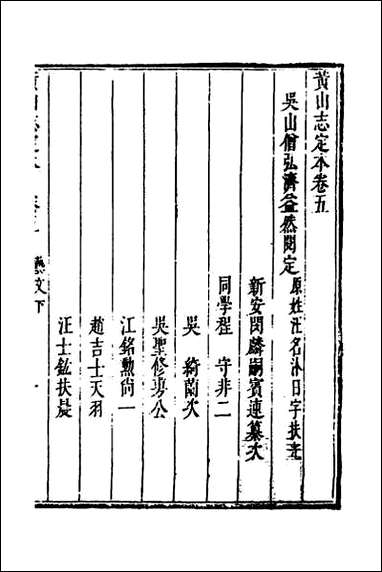 黃山志定本卷五
吳山僧弘濟益然閱定 原姓汪名沐日字扶光
新安閔麟嗣賓連纂次
同學程 守非二
吳 綺薗次
吳聖修 公
江銘勳尚一
趙吉士天羽
汪士鋐扶晨
藝文下